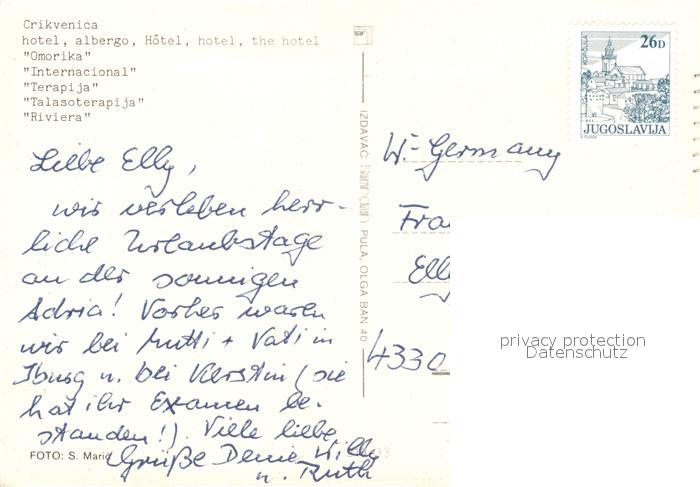 Crikvenica
hotel, albergo, Hôtel, hotel, the hotel
"Omorika"
"Internacional"
"Terapija"
"Talasoterapija"
"Riviera"
26D
JUGOSLAVIJA
IZDAVAČ PULA, OLGA BAN 40
Liebe Elly,
wir verleben herr-
liche Urlaubstage
an der sonnigen
Adria! Vorher waren
wir bei Mutti + Vati in
Iburg u. bei Kerstin (sie
hat ihr Examen be-
standen!). Viele liebe
Grüße Deine Willy
u. Ruth
FOTO: S. Marić
W.-Germany
Fra
Ell
4330
privacy protection
Datenschutz